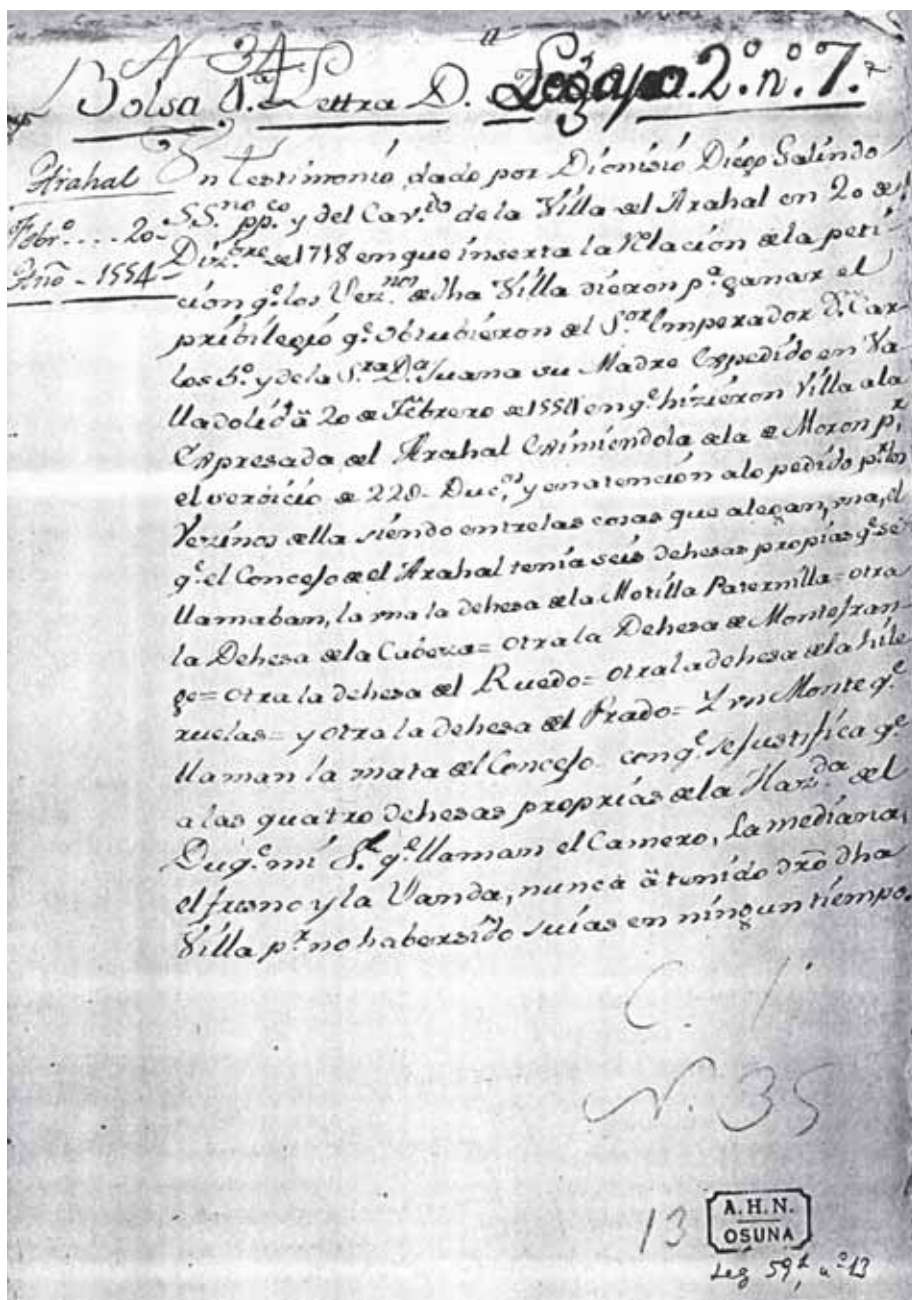 N 34
Bolsa 1.ª Lettra D. Legajo. 2.º n.º 7.
Arahal
Febr.º .... 20-
Año - 1554-
Un testimonio dado por Dionisio Diego Galindo
S.S.no pp.co y del Cav.do de la Villa del Arahal en 20 de
Diz.bre de 1718 en que inserta la relacion de la peti-
cion, q.e los Vez.nos de dha Villa dieron p.a ganar el
pribilegio q.e obtubieron del S.or Emperador D.n Car-
los 5.º y de la S.ra D.a Juana su Madre Expedido en Va
lladolid â 20 de Febrero de 1554 en q.e hizieron Villa a la
Expresada del Arahal Eximiendola de la de Moron p.r
el servicio de 22D. Duc.s, y en atencion a lo pedido p.r los
Vezinos della siendo entre las cosas que alegan, vna, el
q.e el Concejo de el Arahal tenia seis dehesas propias q.e se
llamaban, la vna la dehesa de la Motilla Paternilla = otra
la Dehesa de la Cabeza = otra la Dehesa de Montefran-
ge = otra la dehesa del Ruedo = otra la dehesa de la hile
ruelas = y otra la dehesa del Prado = Y vn Monte q.e
llaman la mata del Concejo con q.e se justifica q.e
a las quatro dehesas proprias de la Haz.da del
Duq.e mi S.r q.e llaman el Camero, la mediana,
el fresno y la Vanda, nunca â tenido dro dha
Villa p.r no haber sido suias en ningun tiempo.
C. 1
N. 35
13
A.H.N.
OSUNA
Leg 59 n.º 13